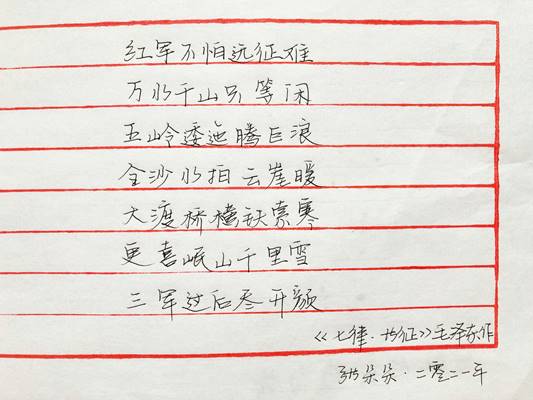 红军不怕远征难
万水千山只等闲
五岭逶迤腾巨浪
金沙水拍云崖暖
大渡桥横铁索寒
更喜岷山千里雪
三军过后尽开颜
《七律·长征》毛泽东作
张朵朵·二零二一年